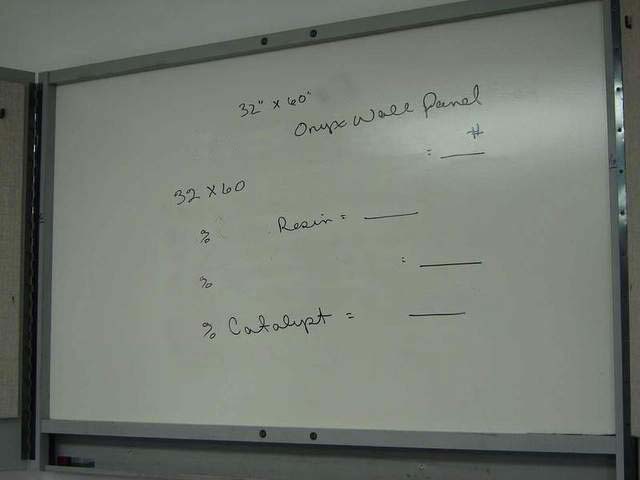 32" x 60"
Onyx Wall Panel
#
= ____
32 x 60
% Resin = ____
% = ____
% Catalypt = ____